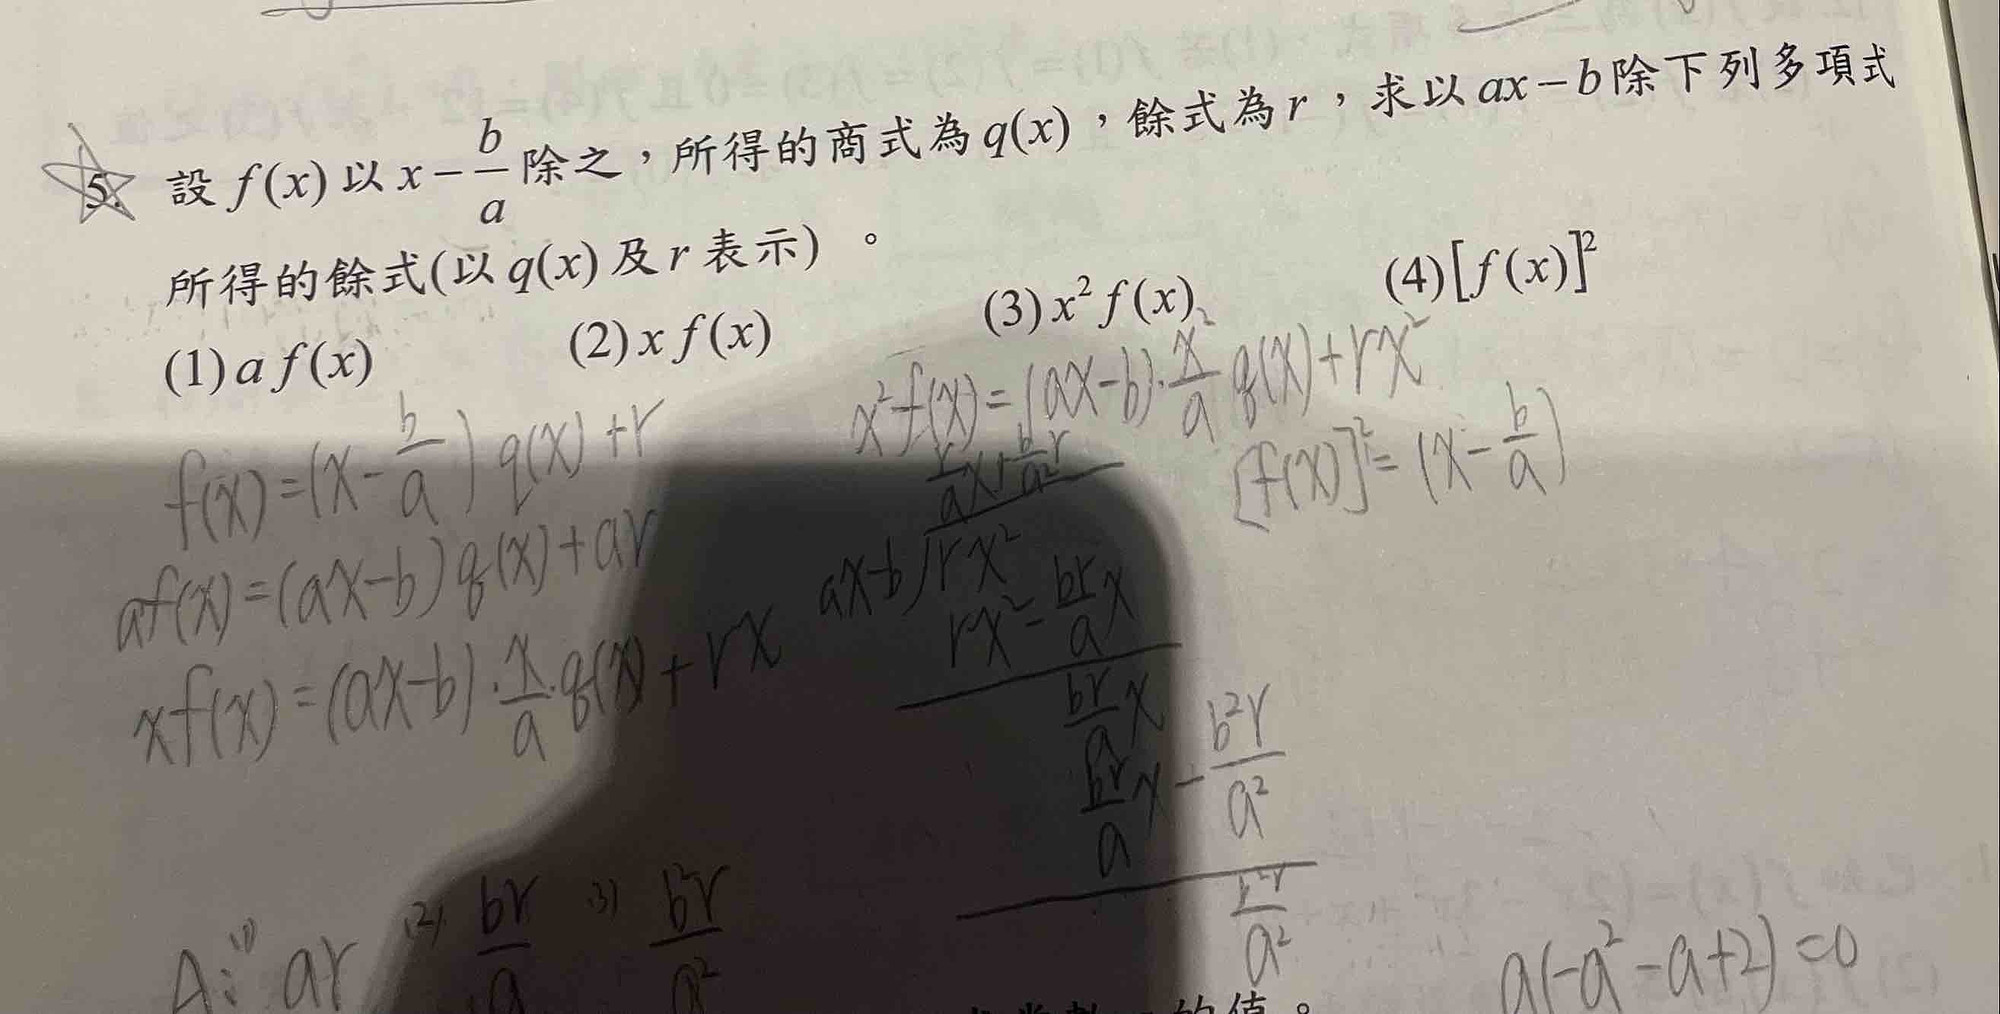 5. 設 f(x) 以 x - b/a 除之，所得的商式為 q(x)，餘式為 r，求以 ax - b 除下列多項式
所得的餘式(以 q(x) 及 r 表示)。
(1) a f(x) (2) x f(x) (3) x² f(x) (4) [f(x)]²
f(x) = (x - b/a) q(x) + r
af(x) = (ax-b) q(x) + ar
xf(x) = (ax-b)·x/a·q(x) + rx
x²f(x) = (ax-b)·x²/a q(x) + rx²
r/a x + b/a² r
ax-b ) rx²
rx² - br/a x
br/a x
br/a x - b²r/a²
b²r/a²
[f(x)]² = (x - b/a)
A: (1) ar (2) br/a (3) b²r/a²
a(-a²-a+2)=0
的值。